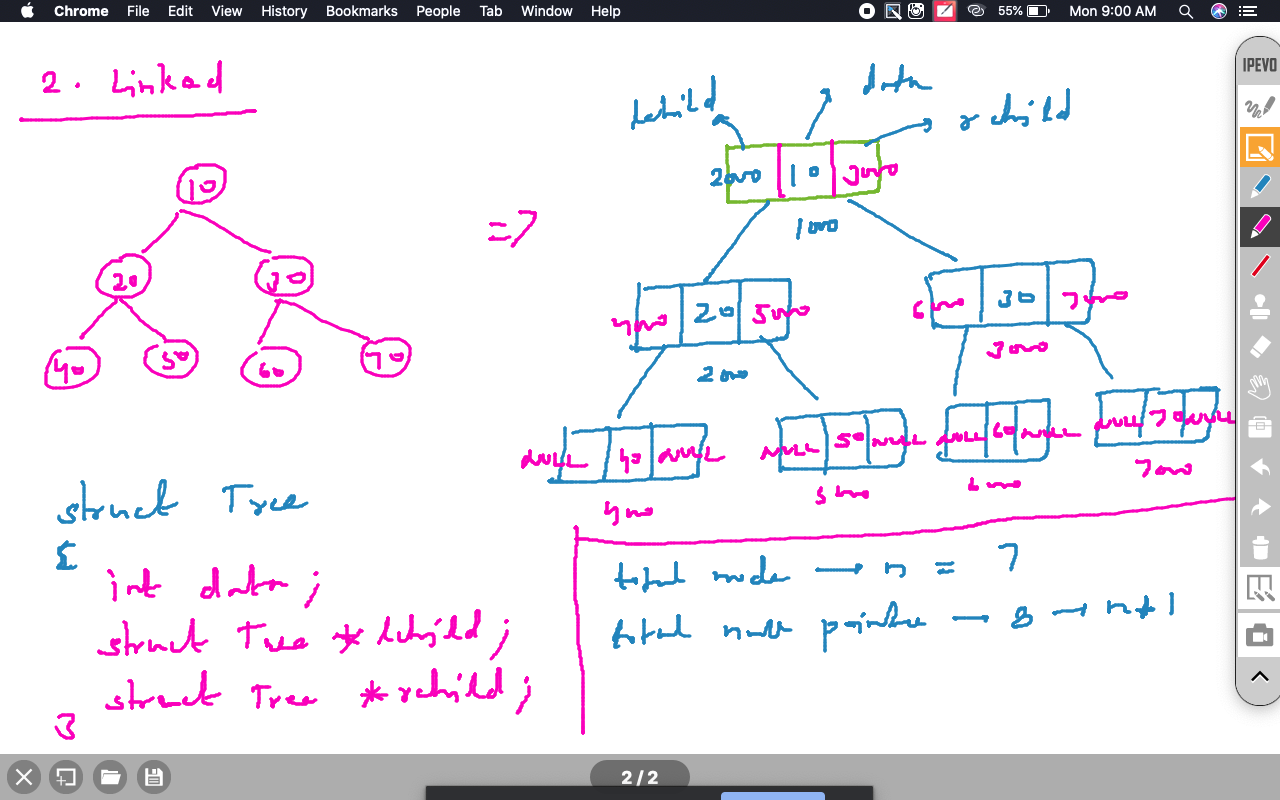 Chrome File Edit View History Bookmarks People Tab Window Help 55% Mon 9:00 AM
IPEVO
2. Linked
10
20 30
40 50 60 70
=>
lchild data rchild
2000 10 3000
1000
4000 20 5000
2000
6000 30 7000
3000
NULL 40 NULL
4000
NULL 50 NULL
5000
NULL 60 NULL
6000
NULL 70 NULL
7000
struct Tree
{
int data;
struct Tree *lchild;
struct Tree *rchild;
}
total node → n = 7
total null pointer → 8 → n+1
2 / 2